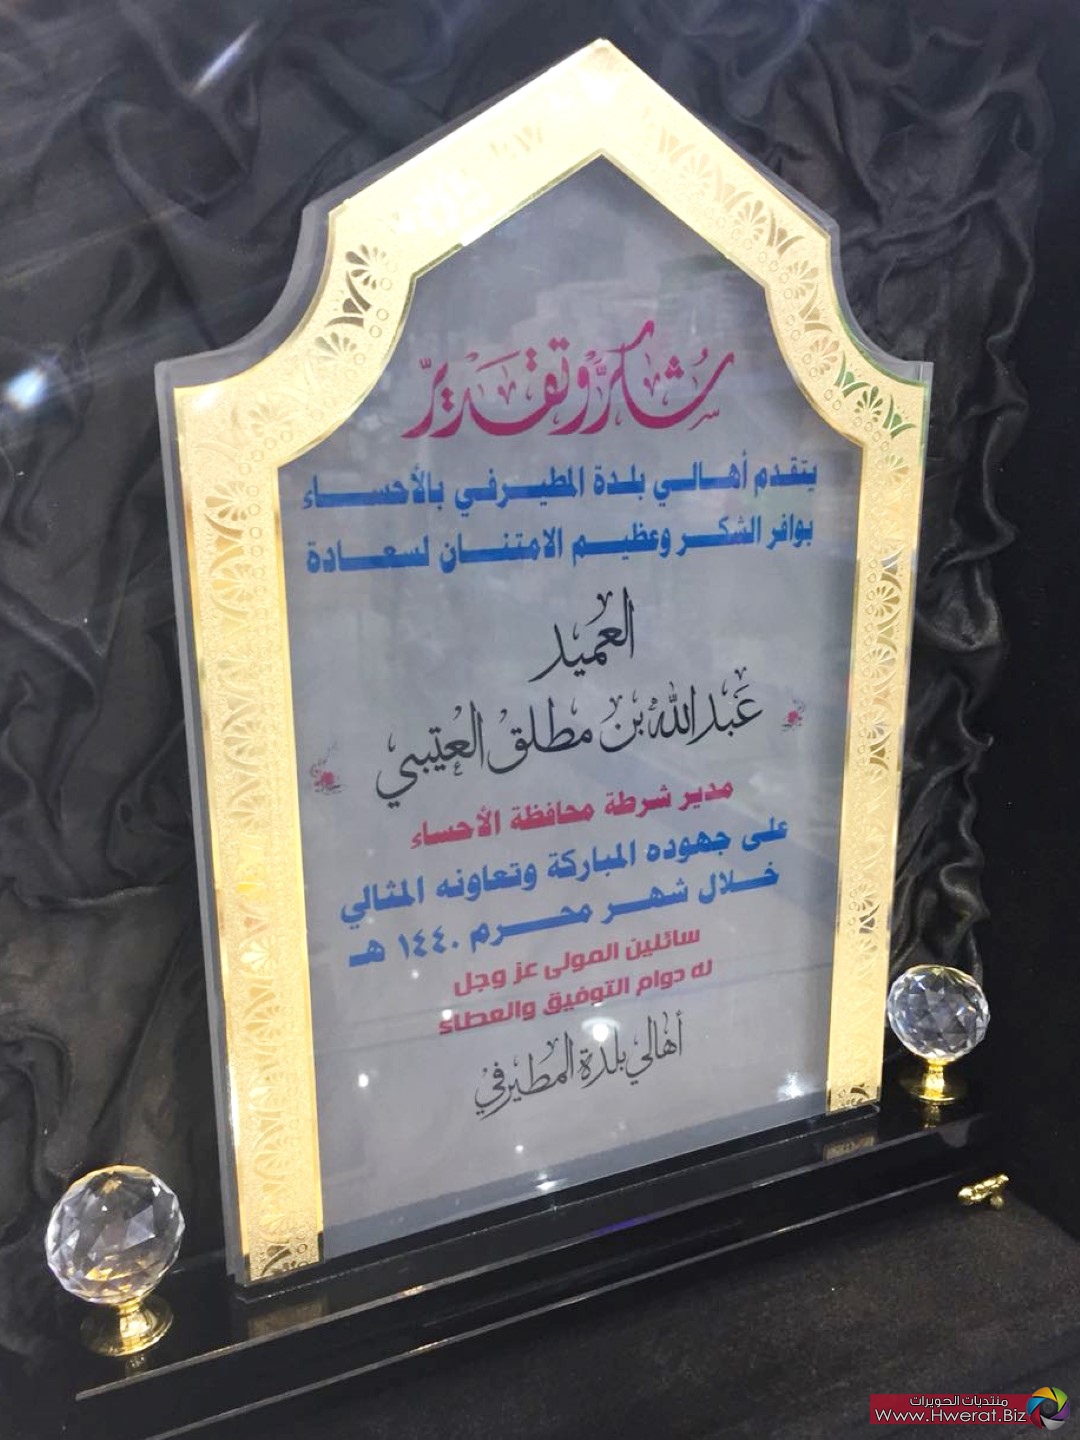 شكر وتقدير
يتقدم أهالي بلدة المطيرفي بالأحساء
بوافر الشكر وعظيم الامتنان لسعادة
العميد
عبدالله بن مطلق العتيبي
مدير شرطة محافظة الأحساء
على جهوده المباركة وتعاونه المثالي
خلال شهر محرم ١٤٤٠ هـ
سائلين المولى عز وجل
له دوام التوفيق والعطاء
أهالي بلدة المطيرفي
منتديات الحويرات
Www.Hwerat.Biz